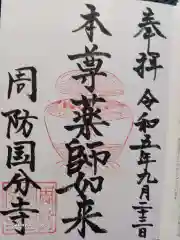 奉拝
令和五年九月二十三日
本尊薬師如来
周防国分寺